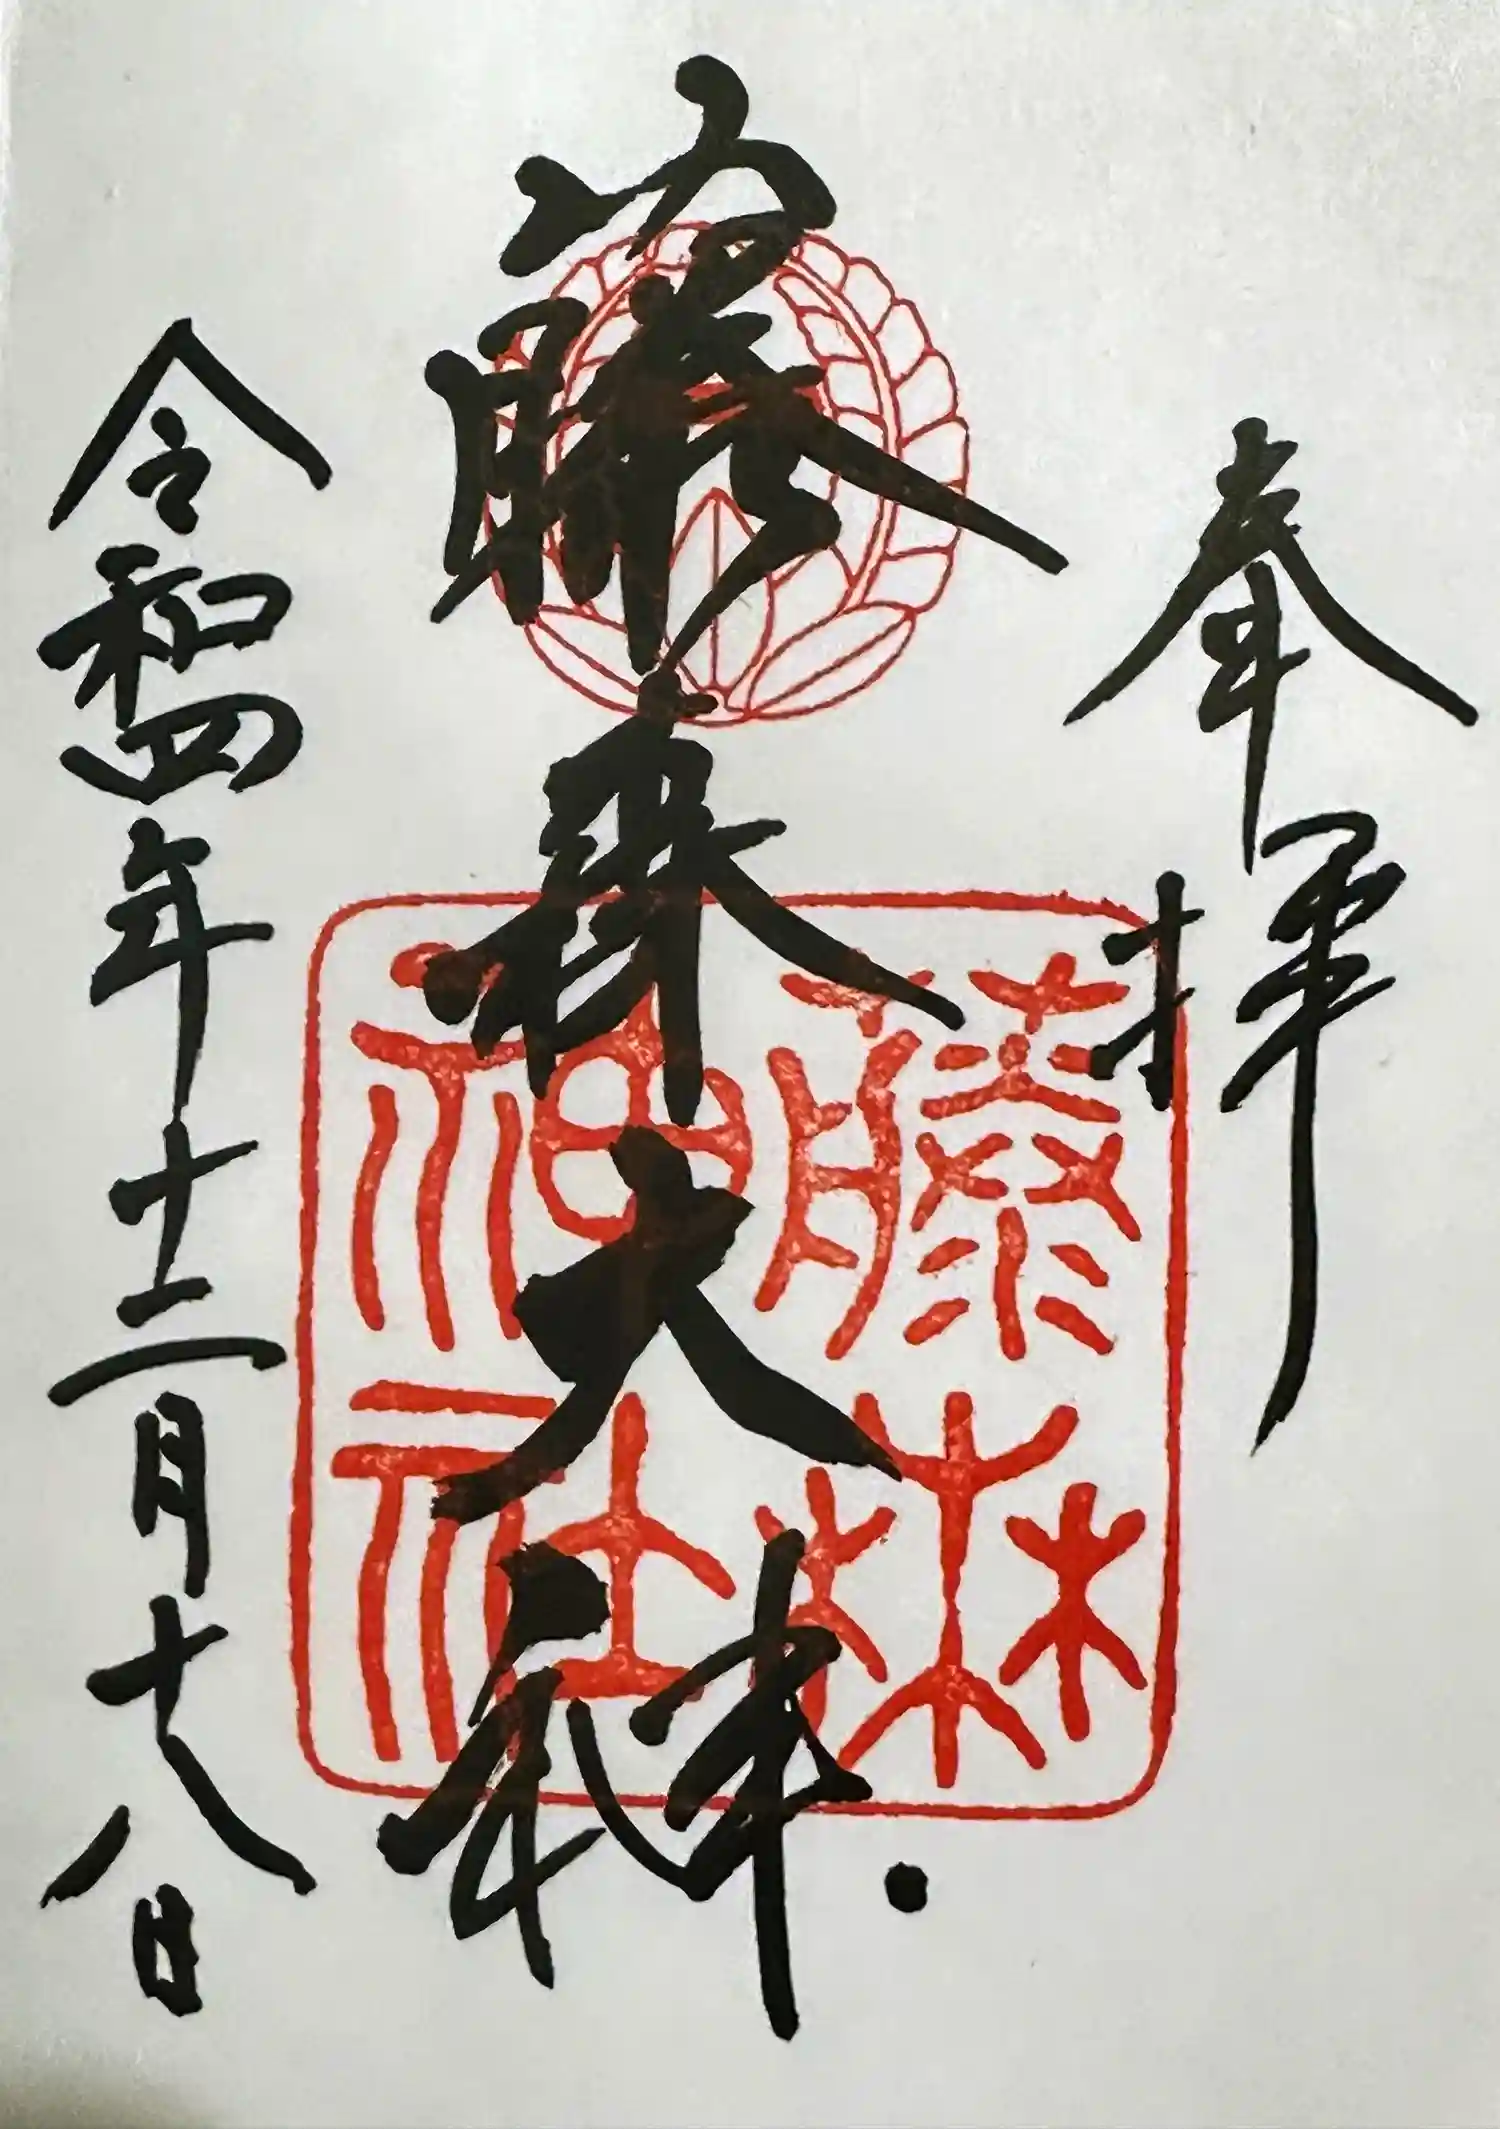 奉拝
藤森大神
令和四年十二月十八日
藤森
神社